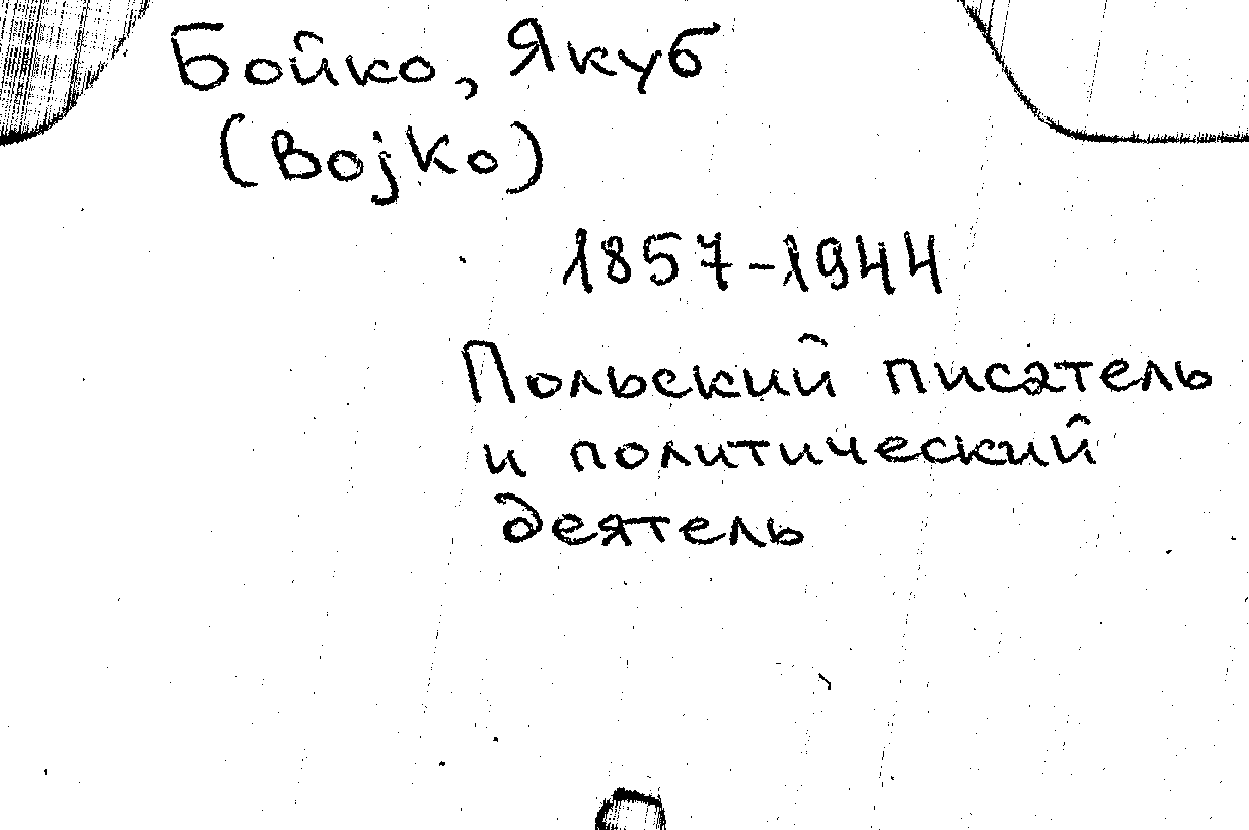 Бойко, Якуб
(Bojko)
1857-1944
Польский писатель
и политический
деятель